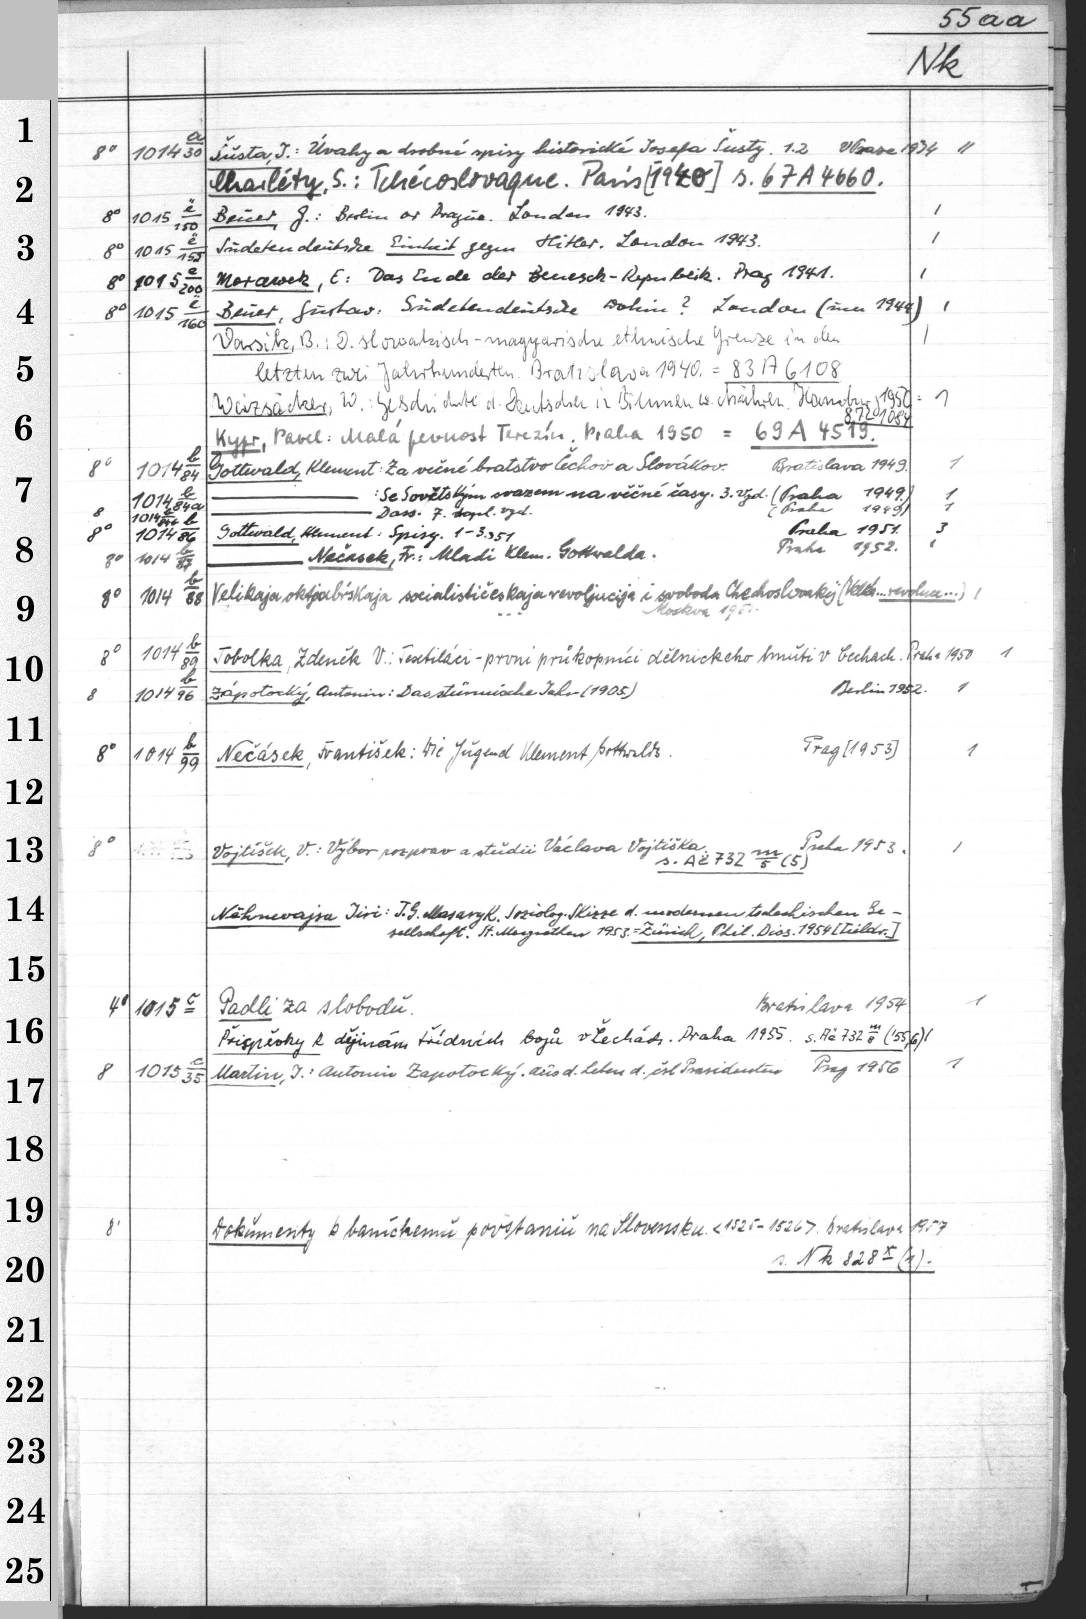 55aa
Nk
1
8° 1014 a/30 Šusta, J.: Úvahy a drobné spisy historické Josefa Šusty. 1.2 V Praze 1934 11
2
Charléty, S.: Tchécoslovaque. Paris [1940] s. 67 A 4660.
8° 1015 ë/150 Beuer, G.: Berlin or Prague. London 1943. 1
3
8° 1015 ë/155 Sudetendeutsche Einheit gegen Hitler. London 1943. 1
8° 1015 e/200 Morawek, E: Das Ende der Benesch-Republik. Prag 1941. 1
4
8° 1015 ë/160 Beuer, Gustav: Sudetendeutsche wohin? London (um 1944) 1
Varsik, B.: D. slowakisch-magyarische ethnische Grenze in den 1
5
letzten zwei Jahrhunderten. Bratislava 1940. = 83 A 6108
Weizsäcker, W.: Geschichte d. Deutschen in Böhmen u. Mähren. Hamburg 1950 = 1
6
Kypr, Pavel: Malá pevnost Terezín. Praha 1950 = 69 A 4519.
8° 1014 b/84 Gottwald, Klement: Za večné bratstvo Čechov a Slovákov. Bratislava 1949. 1
7
1014 b/84a : Se Sovětským svazem na věčné časy. 3. vyd. (Praha 1949.) 1
8 1014 Dass. 7. vyd. (Praha 1949) 1
8° 1014 b/86 Gottwald, Klement: Spisy. 1-3.1951 Praha 1951. 3
8
8° 1014 b/87 Nečásek, Fr.: Mladi Klem. Gottwalda. Praha 1952. 1
9
8° 1014 b/88 Velikaja oktjabŕskaja socialističeskaja revoljucija i svoboda Chechoslovakij (Velká... revoluce...) 1
Moskva
10
8° 1014 b/89 Tobolka, Zdeněk V.: Textiláci - první průkopníci dělnického hnutí v Čechách. Praha 1950 1
8 1014 b/96 Zápotocký, Antonin: Das stürmische Jahr (1905) Berlin 1952. 1
11
8° 1014 b/99 Nečásek, František: Die Jugend Klement Gottwalds. Prag [1953] 1
12
13
8° Vojtíšek, V.: Výbor rozprav a studií Václava Vojtíška. Praha 1953. 1
s. Ač 732 m/5 (5)
14
Nehnevajsa Jiri: T. G. Masaryk. Soziolog. Skizze d. modernen tschechischen Ge-
sellschaft. St. Margrethen 1953. = Zürich, Phil. Diss. 1954 [Teildr.]
15
4° 1015 č Padli za slobodu. Bratislava 1954 1
16
Příspěvky k dějinám třídních bojů v Čechách. Praha 1955. s. Ač 732 m/8 ('55,6) 1
17
8 1015 c/35 Martin, J.: Antonin Zapotocký. Aus d. Leben d. čsl. Präsidenten Prag 1956 1
18
19
8° Dokumenty k baníckemu povstaniu na Slovensku. <1525-1526>. Bratislava 1957
20
s. Nk 828 x (1).
21
22
23
24
25